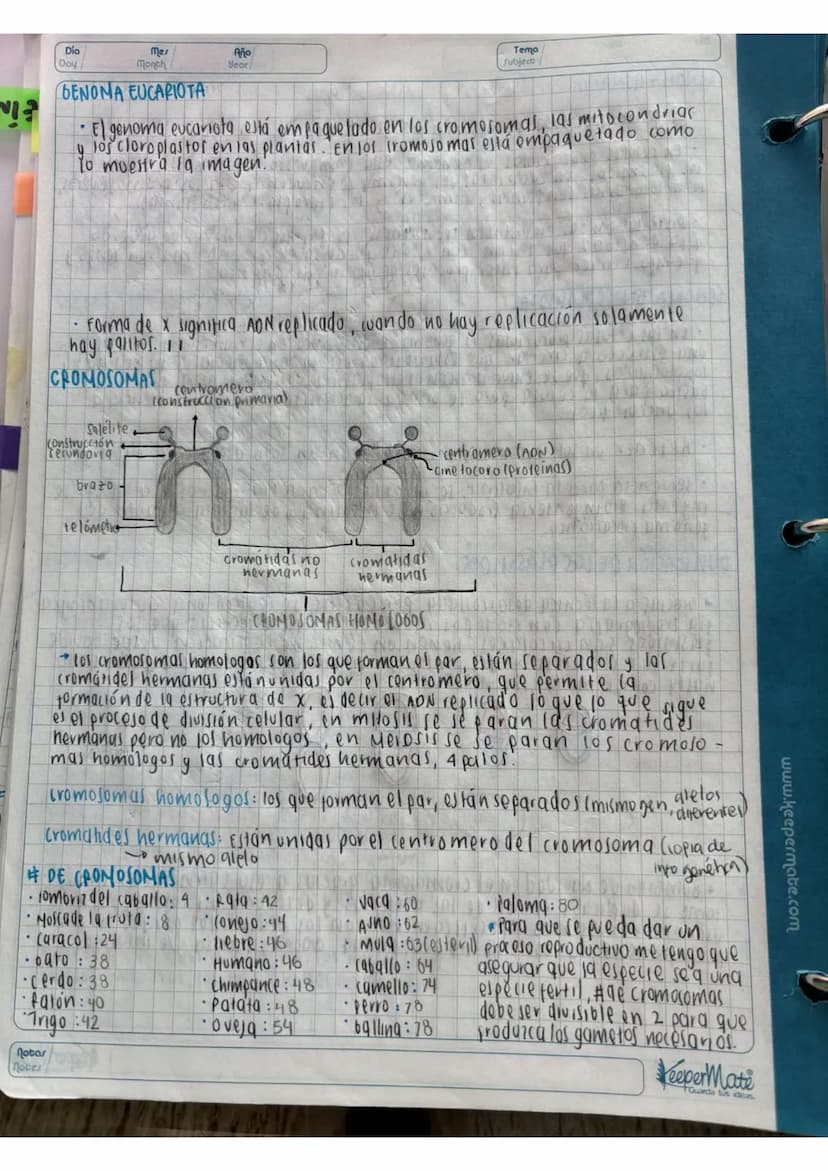 Día Mes Año
Day Month Year
Tema
Subject
GENOMA EUCARIOTA
• El genoma eucariota está empaquetado en los cromosomas, las mitocondrias
y los cloroplastos en las plantas. En los cromosomas está empaquetado como
lo muestra la imagen.
• Forma de X significa ADN replicado, cuando no hay replicación solamente
hay palitos. ||
CROMOSOMAS
centromero
(construccion primaria)
Satélite
construcción
secundaria
brazo
telómero
centromero (ADN)
cinetocoro (proteinas)
cromátidas no
hermanas
cromatidas
hermanas
CROMOSOMAS HOMÓLOGOS
→ los cromosomas homologos son los que forman el par, están separados y las
cromátides hermanas están unidas por el centromero, que permite la
formación de la estructura de X, es decir el ADN replicado lo que lo que sigue
es el proceso de división celular, en mitosis se separan las cromatides
hermanas pero no los homologos, en Meiosis se separan los cromoso-
mas homólogos y las cromátides hermanas, 4 palos.
cromosomas homologos: los que forman el par, están separados (mismo gen, alelos
diferentes)
cromatides hermanas: Están unidas por el centromero del cromosoma (copia de
→ mismo alelo
info genética)
# DE CROMOSOMAS
• lombriz del caballo: 4
• Mosca de la fruta: 8
• caracol: 24
• Gato: 38
• cerdo: 38
• Ratón: 40
• Trigo: 42
• Rata: 42
• conejo: 44
• liebre: 46
• Humano: 46
• Chimpance: 48
• Patata: 48
• Oveja: 54
• Vaca: 60
• Asno: 62
• Mula: 63 (esteril)
• caballo: 64
• camello: 74
• Perro: 78
• Gallina: 78
• Paloma: 80
• Para que se pueda dar un
proceso reproductivo me tengo que
asegurar que la especie sea una
especie fertil, # de cromosomas
debe ser divisible en 2 para que
produzca los gametos necesarios.
Notas
Notes
KeeperMate
Guarda tus ideas
www.keepermate.com